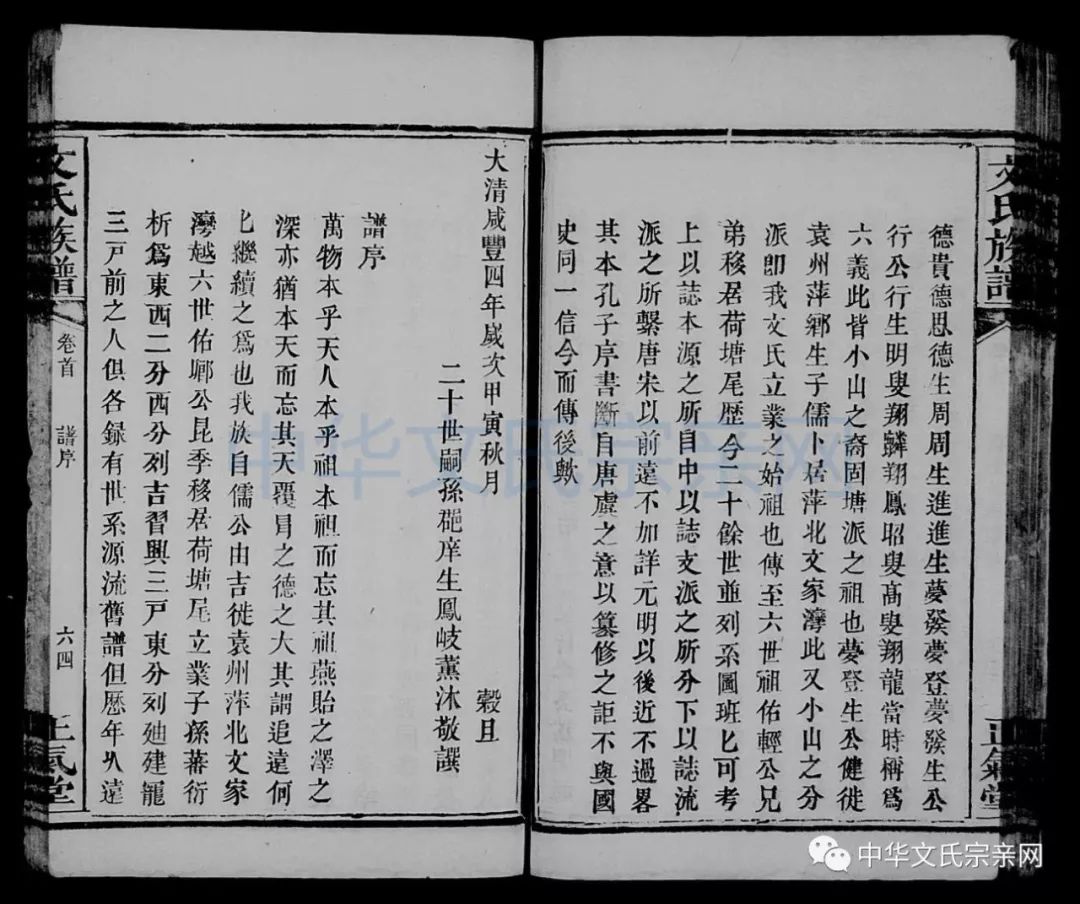 文氏族譜
正氣堂
德貴德思德生周周生進進生夢發夢登夢發生公
行公行生明叟翔麟翔鳳昭叟髙叟翔龍當時稱爲
六義此皆小山之裔固塘派之祖也夢登生公健徙
袁州萍鄉生子儒卜居萍北文家灣此又小山之分
派即我文氏立業之始祖也傳至六世祖佑輕公兄
弟移居荷塘尾歷今二十餘世並列系圖班匕可考
上以誌本源之所自中以誌支派之所分下以誌流
派之所繫唐宋以前遠不加詳元明以後近不過畧
其本孔子序書斷自唐虞之意以纂修之詎不與國
史同一信今而傳後歟
大清咸豐四年嵗次甲寅秋月 穀旦
二十世嗣孫郒庠生鳳岐薰沐敬譔
譜序
萬物本乎天人本乎祖本祖而忘其祖燕貽之澤之
深亦猶本天而忘其天覆冐之德之大其謂追遠何
匕繼續之爲也我族自儒公由吉徙袁州萍北文家
灣越六世佑郷公昆季移居荷塘尾立業子孫蕃衍
析爲東西二分西分列吉習興三戸東分列廸建龍
三戸前之人俱各録有世系源流舊譜但歷年乆遠
文氏族譜
卷首
譜序
六四
正氣堂
中华文氏宗亲网
中华文氏宗亲网